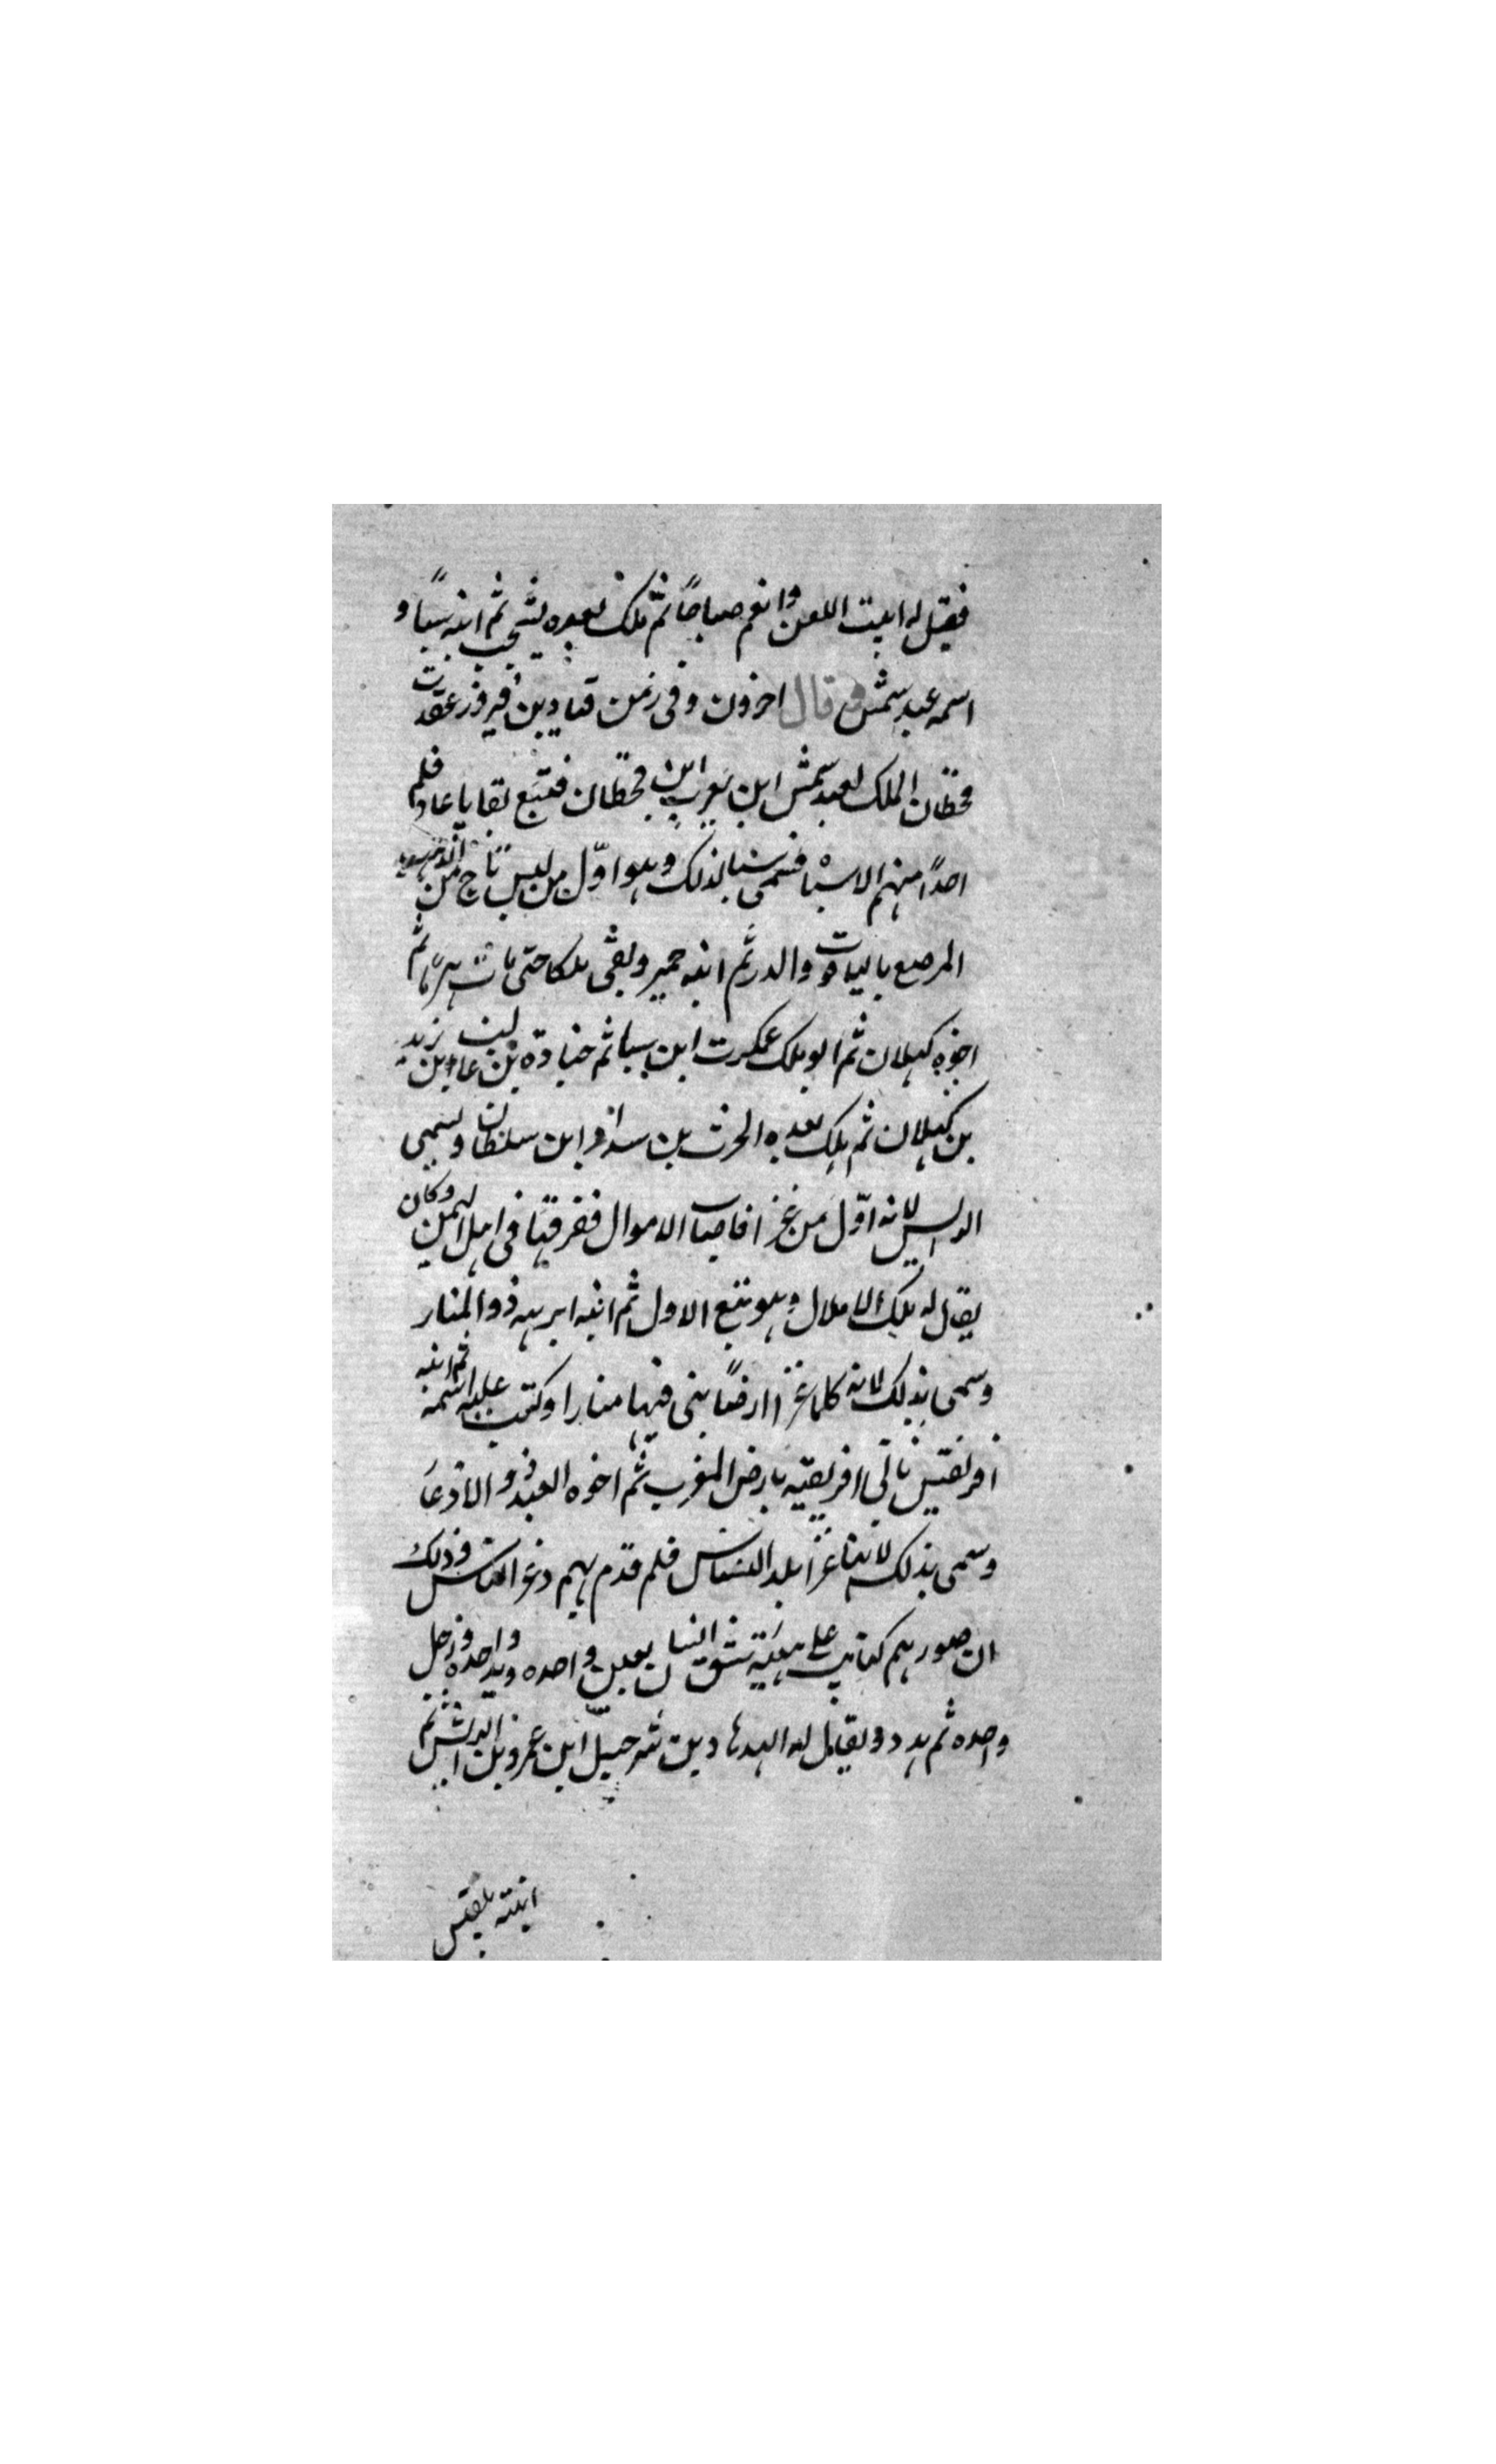 فقيل له ابيت اللعن وانعم صباحًا ثم ملك بعده يشجب ثم ابنه سبأ و
اسمه عبد شمس وقال اخرون وفى زمن قبادبن فيروز عقدت
قحطان الملك لعبد شمس ابن يعرب ابن قحطان فتتبع بقايا عاد فلم
احدًا منهم الا سبا فسمى سبا لذلك وهو اوّل من لبس تاج من الذهب
المرصع باليافوت والدر ثم ابنه حمير وبقى ملكا حتى مات هرمًا ثم
اخوه كهلان ثم ابو ملك عمكرت ابن سبا ثم جنادة بن غالب بن زيد
بن كهلان ثم ملك بعده الحرث بن سدا و ابن سلطان وسمى
الرايس لانه اوّل من غزا فاصاب الاموال ففرقها فى اهل اليمن وكان
يقال له ملك الاملاك وهو تبع الاول ثم ابنه ابرهه ذو المنار
وسمى بذلك لانه كلما غزا ارضًا بنى فيها منارا وكتب عليه اسمه ثم ابنه
افريقيس بانى افريقيه بارض المغرب ثم اخوه العبد ذو الاذعار
وسمى بذلك لانه غزا بلد النسناس فلم قدم بهم ذعر الناس وذلك
ان صورهم كانت على هيئة شق انسان بعين واحده ويد واحده ورجل
واحده ثم هدد ويقال له الهدهاد بن شرحبيل ابن عمرو بن الرايش ثم
ابنته بلقيس